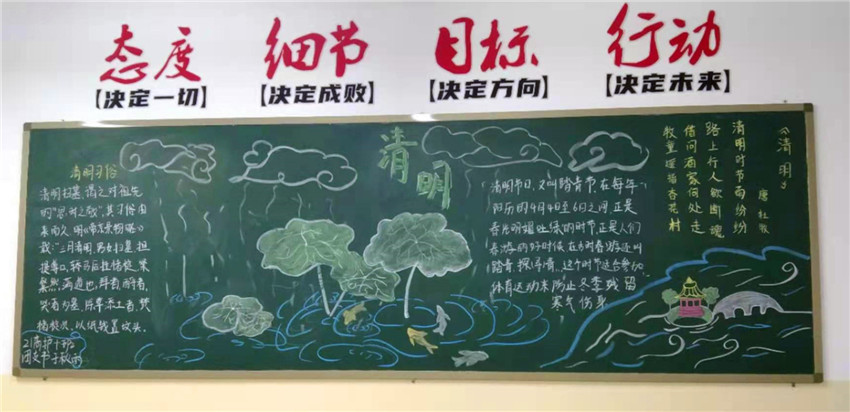 态度 细节 目标 行动
【决定一切】 【决定成败】 【决定方向】 【决定未来】
清明习俗
清明扫墓,谓之对祖先
的"思时之敬",其习俗由
来历久.明《帝京景物略》
载:"三月清明,男女扫墓,担
提尊,轿马后挂楮锭,粲
粲然满道也,拜者、酹者、
哭者、为墓除草添土者,焚
楮锭次,以纸钱置坟头.
21高护十班
团支书于秋雨
清明
清明节日,又叫踏青节,在每年
阳历的4月4日至6日之间,正是
春光明媚的时节,正是人们
春游的好时候,在古时春游还叫
踏青,探春,这个时节适合参加
体育运动来防止冬季残留
寒气伤身
《清明》
唐 杜牧
清明时节雨纷纷
路上行人欲断魂
借问酒家何处走
牧童遥指杏花村